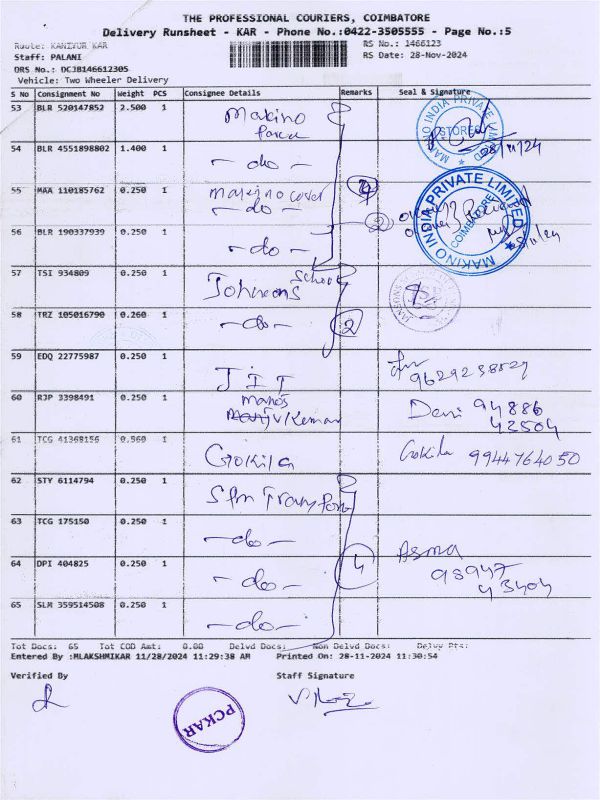 THE PROFESSIONAL COURIERS, COIMBATORE
Delivery Runsheet - KAR - Phone No.:0422-3505555 - Page No.:5
Route: KANIYUR KAR RS No.: 1466123
Staff: PALANI RS Date: 28-Nov-2024
DRS No.: DCJB146612305
Vehicle: Two Wheeler Delivery
S No Consignment No Weight PCS Consignee Details Remarks Seal & Signature
53 BLR 520147852 2.500 1 Makino
MAKINO INDIA PRIVATE LIMITED
STORES
28/11/24
54 BLR 4551898802 1.400 1 - do -
55 MAA 110185762 0.250 1 Makino cover
- do -
MAKINO INDIA PRIVATE LIMITED
COIMBATORE
56 BLR 190337939 0.250 1 - do -
57 TSI 934809 0.250 1 Johnsons School
58 TRZ 105016790 0.260 1 - do - 2
59 EDQ 22775987 0.250 1 JIT
9629238529
60 RJP 3398491 0.250 1 Manoj Kumar Devi 94886
42504
61 TCG 41368156 0.560 1 Gokila Gokila 9944764050
62 STY 6114794 0.250 1 Spm Transport
63 TCG 175150 0.250 1 - do -
64 DPI 404825 0.250 1 - do - 4 Asma
98947
43404
65 SLM 359514508 0.250 1 - do -
Tot Docs: 65 Tot COD Amt: 0.00 Delvd Docs: Non Delvd Docs: Delvy Pts:
Entered By :MLAKSHMIKAR 11/28/2024 11:29:38 AM Printed On: 28-11-2024 11:30:54
Verified By Staff Signature
PCKAR